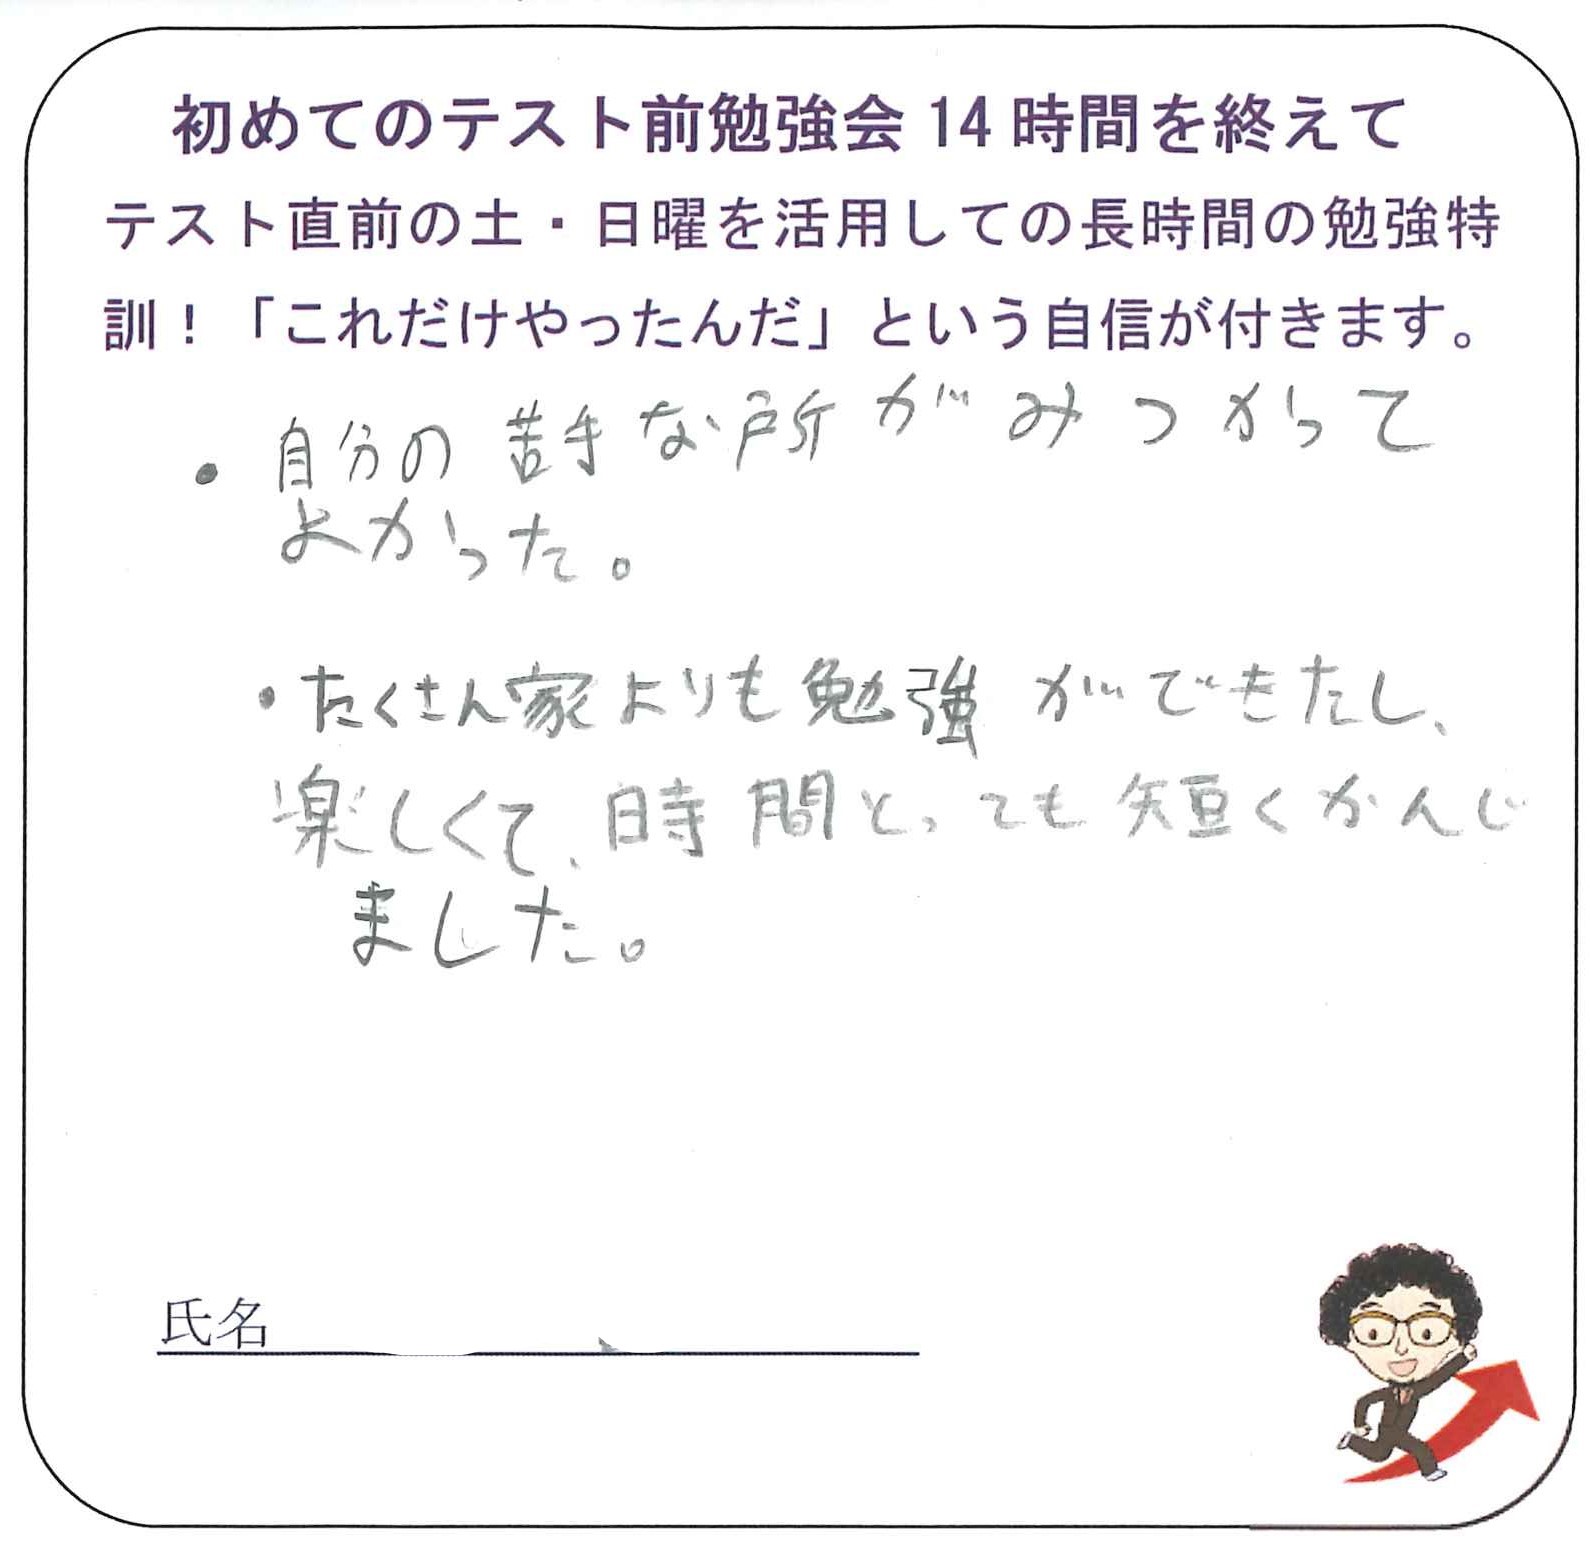 初めてのテスト前勉強会14時間を終えて
テスト直前の土・日曜を活用しての長時間の勉強特
訓！「これだけやったんだ」という自信が付きます。
・自分の苦手な所がみつかって
よかった。
・たくさん家よりも勉強ができたし、
楽しくて、時間とっても短くかんじ
ました。
氏名